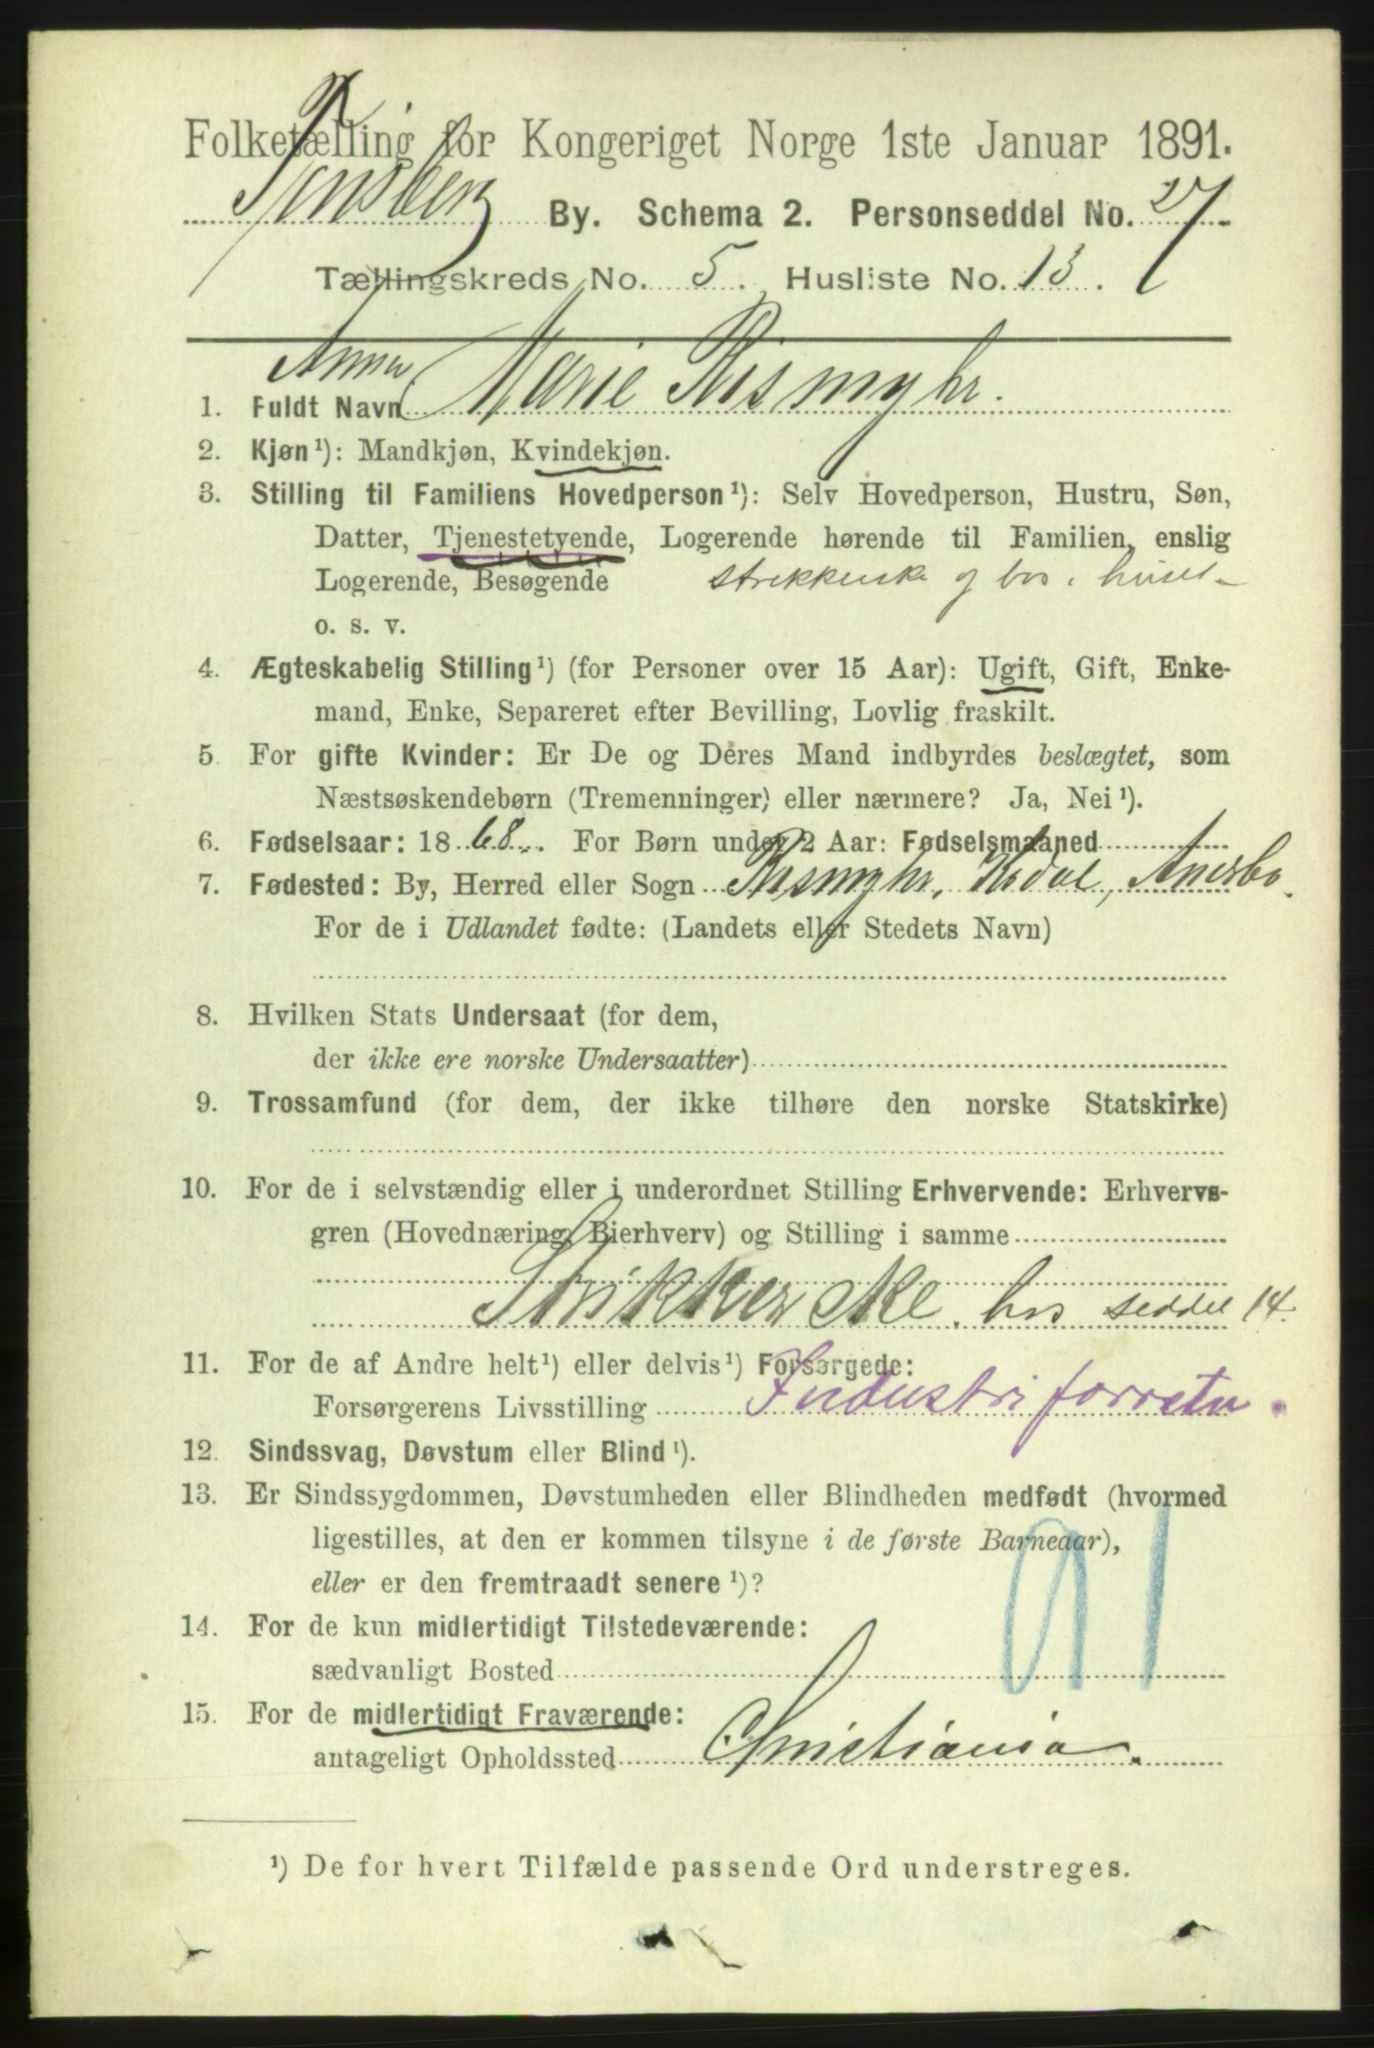 Folketælling for Kongeriget Norge 1ste Januar 1891.
Tønsberg By. Schema 2. Personseddel No. 27.
Tællingskreds No. 5. Husliste No. 13.
Anna
1. Fuldt Navn Marie Rismyhr.
2. Kjøn¹): Mandkjøn, Kvindekjøn.
3. Stilling til Familiens Hovedperson¹): Selv Hovedperson, Hustru, Søn,
Datter, Tjenestetyende, Logerende hørende til Familien, enslig
Logerende, Besøgende strikkerske og bor i huset
o. s. v.
4. Ægteskabelig Stilling¹) (for Personer over 15 Aar): Ugift, Gift, Enke-
mand, Enke, Separeret efter Bevilling, Lovlig fraskilt.
5. For gifte Kvinder: Er De og Deres Mand indbyrdes beslægtet, som
Næstsøskendebørn (Tremenninger) eller nærmere? Ja, Nei¹).
6. Fødselsaar: 1868. For Børn under 2 Aar: Fødselsmaaned
7. Fødested: By, Herred eller Sogn Rismyhr, Kodal, Anebo.
For de i Udlandet fødte: (Landets eller Stedets Navn)
8. Hvilken Stats Undersaat (for dem,
der ikke ere norske Undersaatter)
9. Trossamfund (for dem, der ikke tilhøre den norske Statskirke)
10. For de i selvstændig eller i underordnet Stilling Erhvervende: Erhvervs-
gren (Hovednæring, Bierhverv) og Stilling i samme
Strikkerske. hos seddel 14.
11. For de af Andre helt¹) eller delvis¹) Forsørgede:
Forsørgerens Livsstilling Industriforretn.
12. Sindssvag, Døvstum eller Blind¹).
13. Er Sindssygdommen, Døvstumheden eller Blindheden medfødt (hvormed
ligestilles, at den er kommen tilsyne i de første Barneaar),
eller er den fremtraadt senere¹)?
91
14. For de kun midlertidigt Tilstedeværende:
sædvanligt Bosted
15. For de midlertidigt Fraværende:
antageligt Opholdssted Christiania.
¹) De for hvert Tilfælde passende Ord understreges.